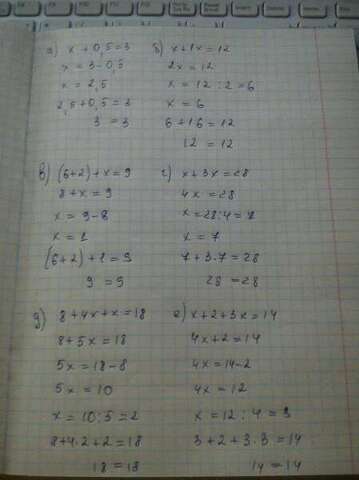 а) x + 0,5 = 3
x = 3 - 0,5
x = 2,5
2,5 + 0,5 = 3
3 = 3
б) x + 1x = 12
2x = 12
x = 12 : 2 = 6
x = 6
6 + 1·6 = 12
12 = 12
в) (6+2) + x = 9
8 + x = 9
x = 9 - 8
x = 1
(6+2) + 1 = 9
9 = 9
г) x + 3x = 28
4x = 28
x = 28 : 4 = 7
x = 7
7 + 3·7 = 28
28 = 28
д) 8 + 4x + x = 18
8 + 5x = 18
5x = 18 - 8
5x = 10
x = 10 : 5 = 2
8 + 4·2 + 2 = 18
18 = 18
е) x + 2 + 3x = 14
4x + 2 = 14
4x = 14 - 2
4x = 12
x = 12 : 4 = 3
3 + 2 + 3·3 = 14
14 = 14